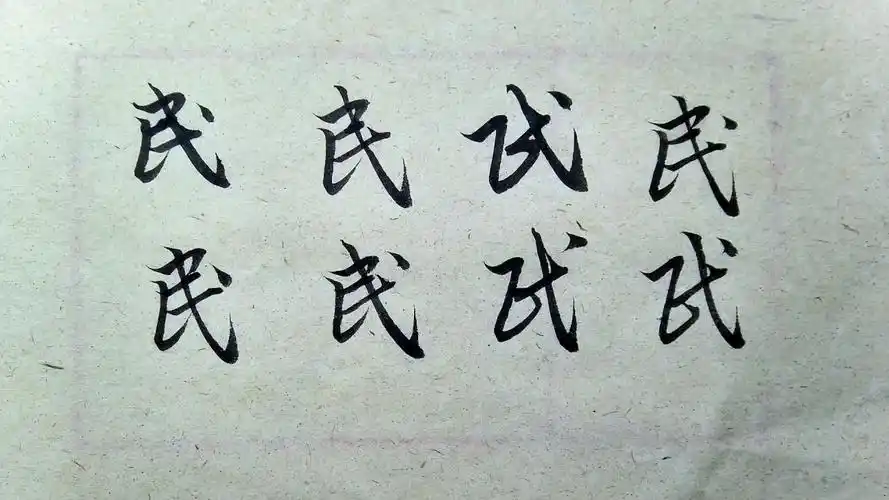 民民民民
民民民民